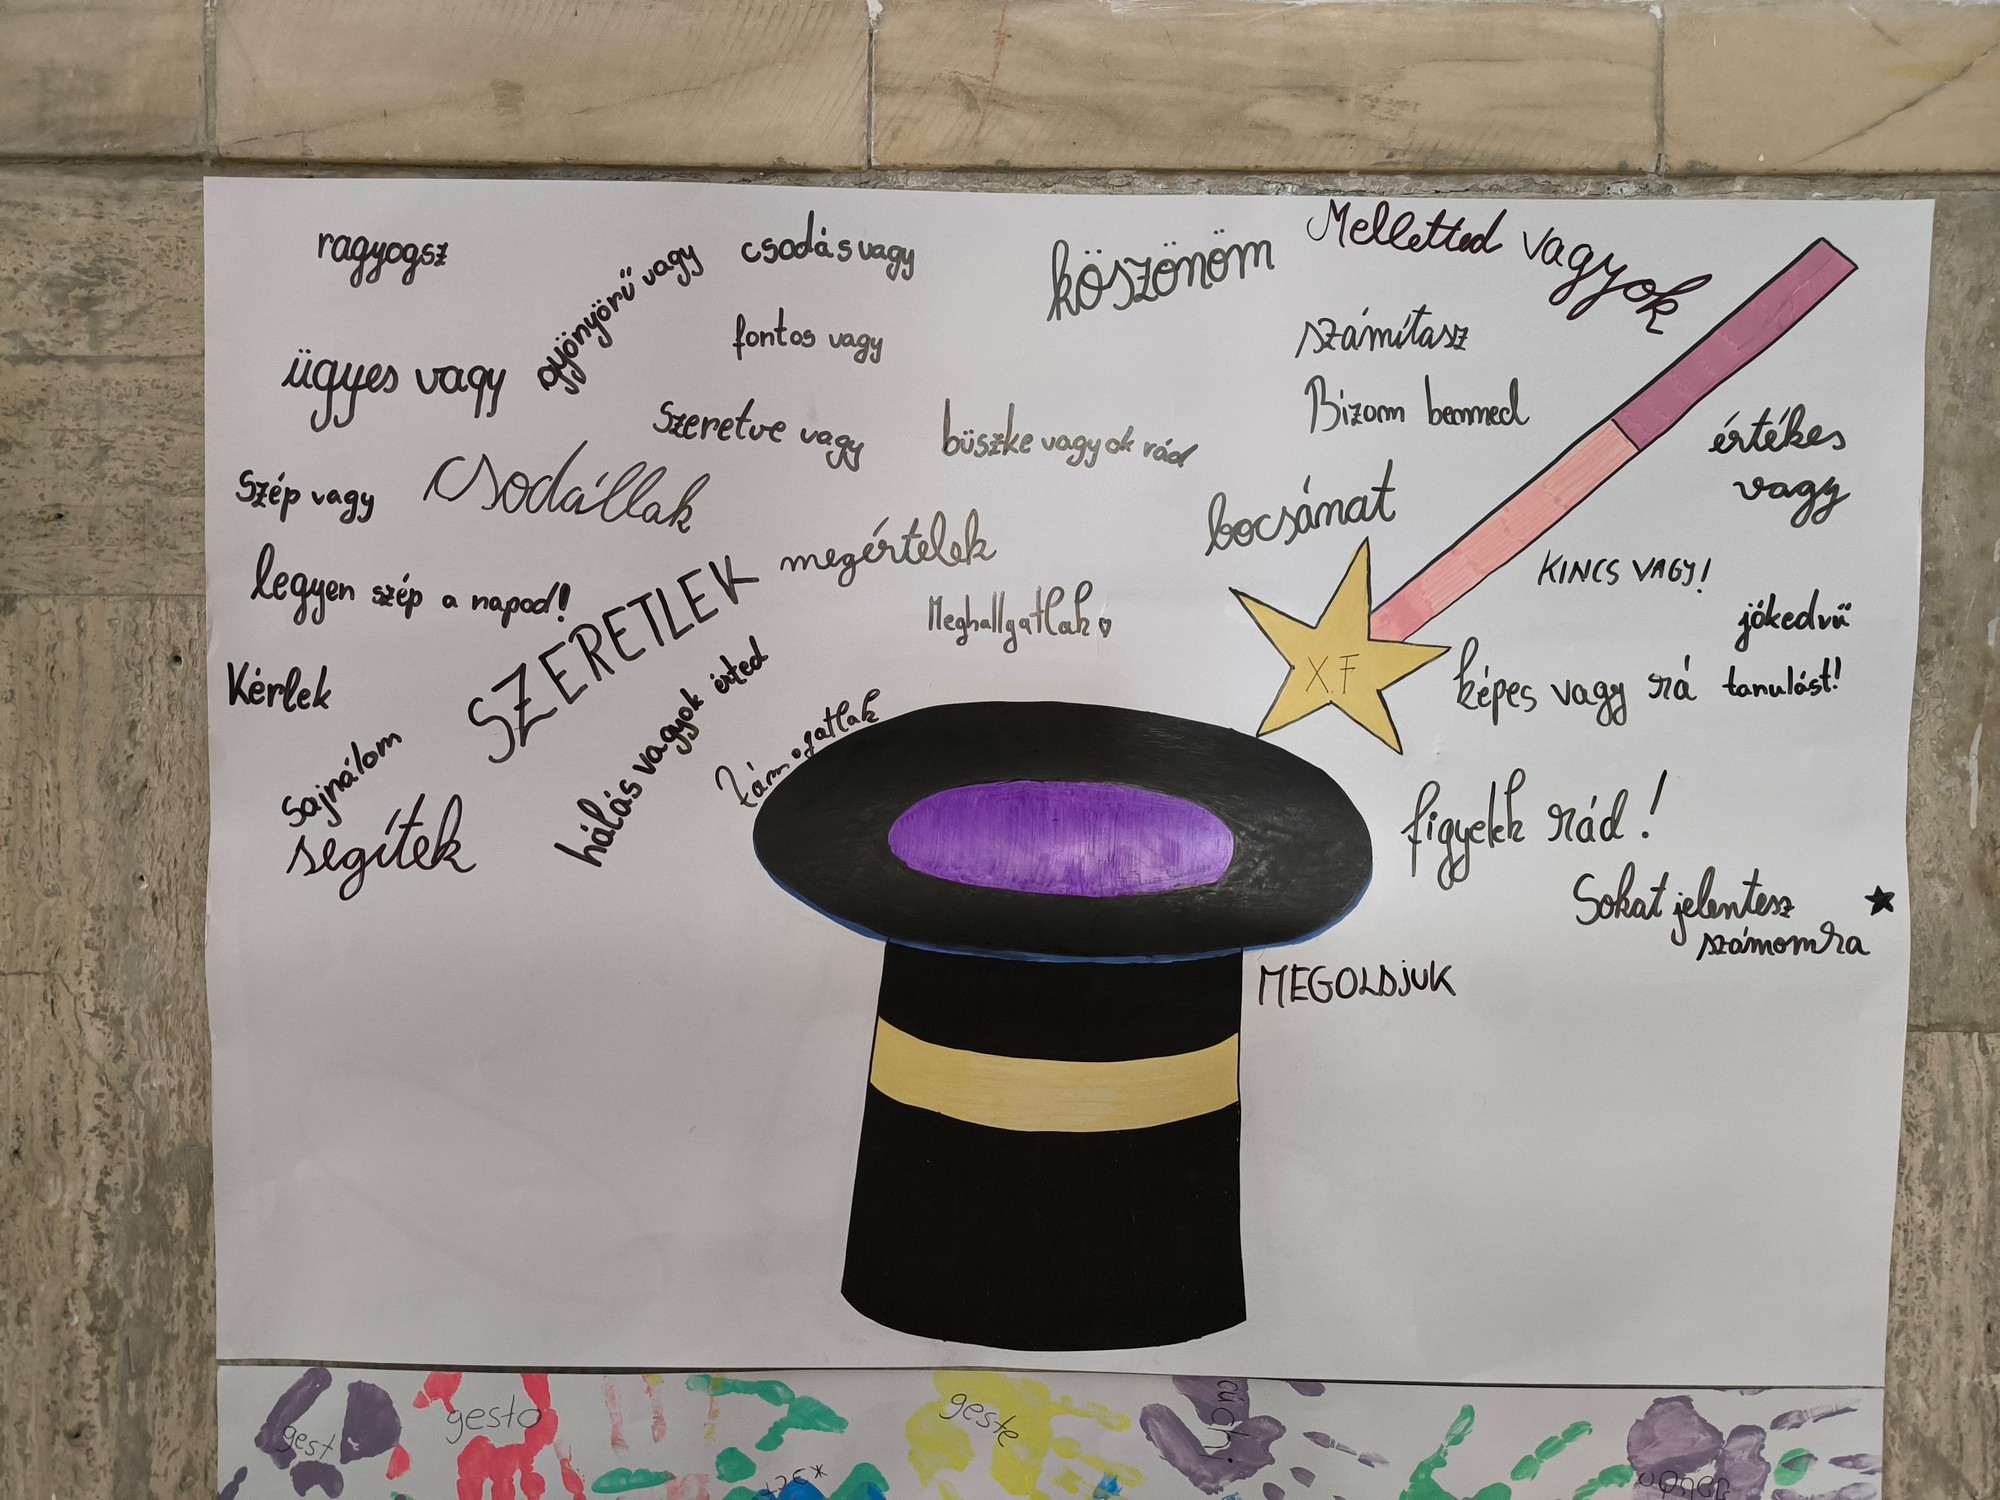 ragyogsz
gyönyörű vagy
csodás vagy
köszönöm
Melletted vagyok
fontos vagy
számítasz
ügyes vagy
Szeretve vagy
büszke vagyok rád
Bizom benned
értékes
vagy
Szép vagy
Csodállak
bocsánat
megértelek
KINCS VAGY!
legyen szép a napod!
SZERETLEK
Meghallgatlak
jókedvű
Kérlek
hálás vagyok érted
X.F
képes vagy rá
tanulást!
Sajnálom
Támogatlak
segítek
figyelek rád!
Sokat jelentesz
számomra
MEGOLDJUK
gest
gesto
geste